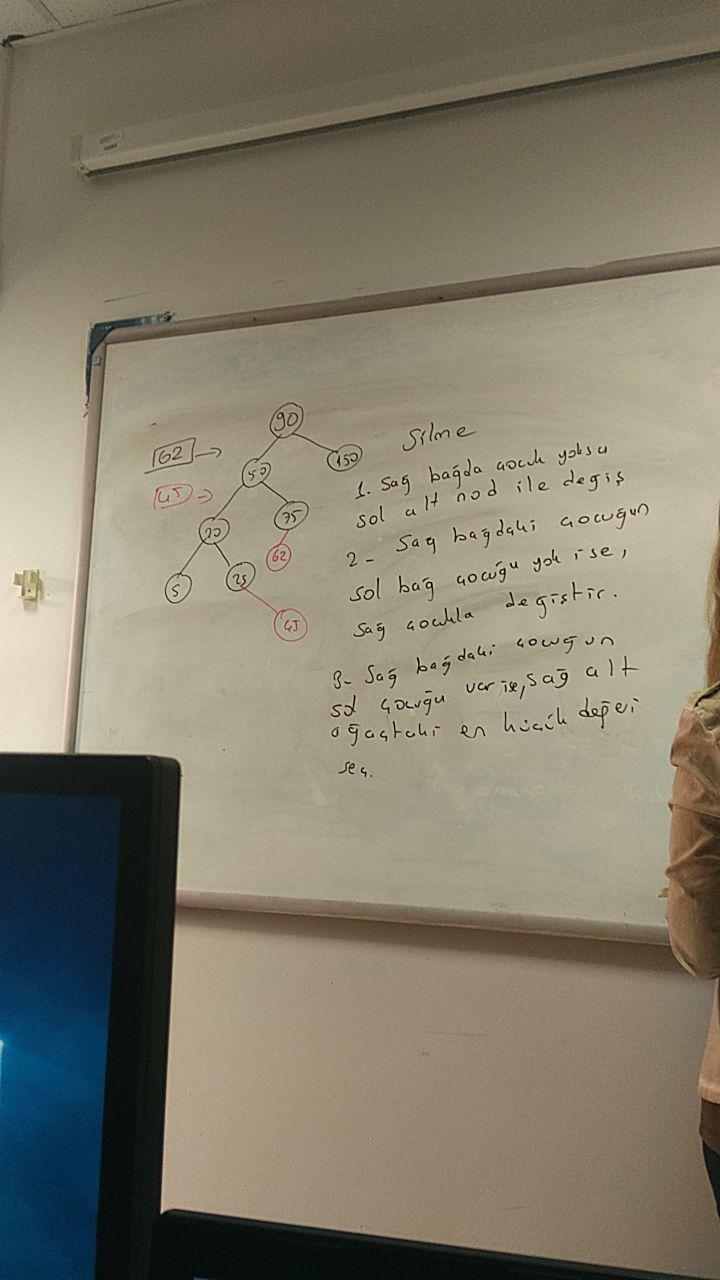 90
62 →
50
150
45 →
20
75
62
5
25
45
Silme
1. Sağ bağda çocuk yoksa
sol alt nod ile değiş
2- Sağ bağdaki çocuğun
sol bağ çocuğu yok ise,
sağ çocukla değiştir.
3- Sağ bağdaki çocuğun
sol çocuğu var ise, sağ alt
ağaçtaki en küçük değeri
seç.